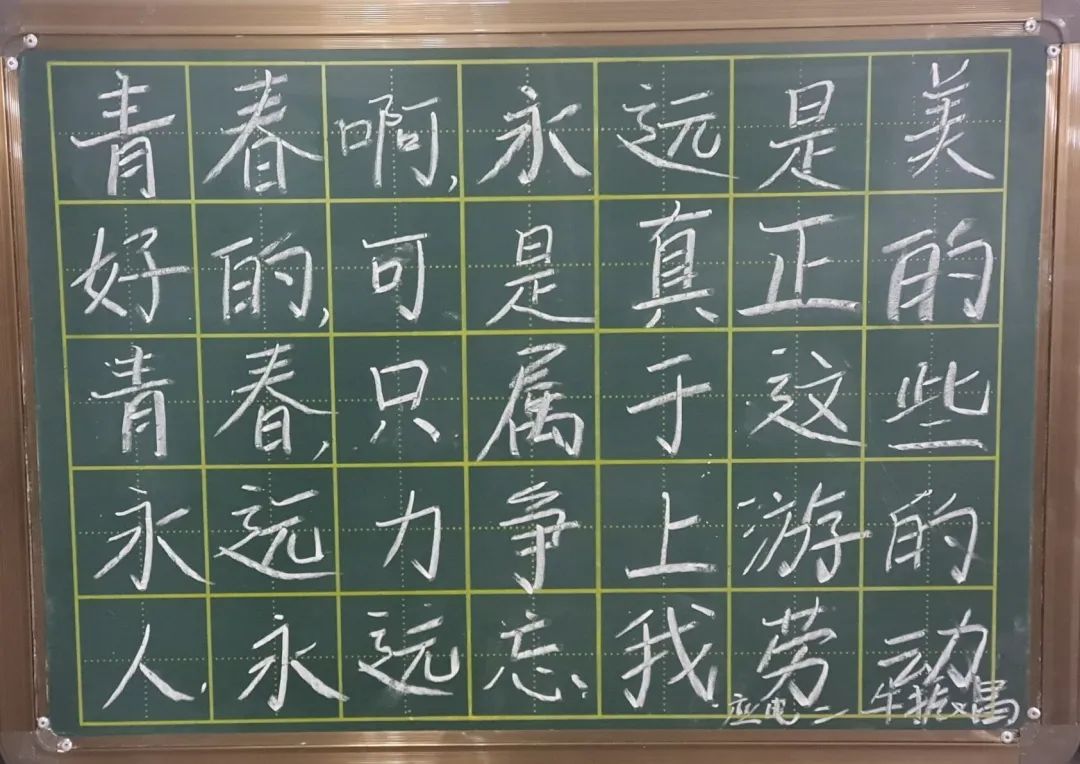 青春啊,永远是美
好的,可是真正的
青春,只属于这些
永远力争上游的
人,永远忘我劳动
应电二 牛